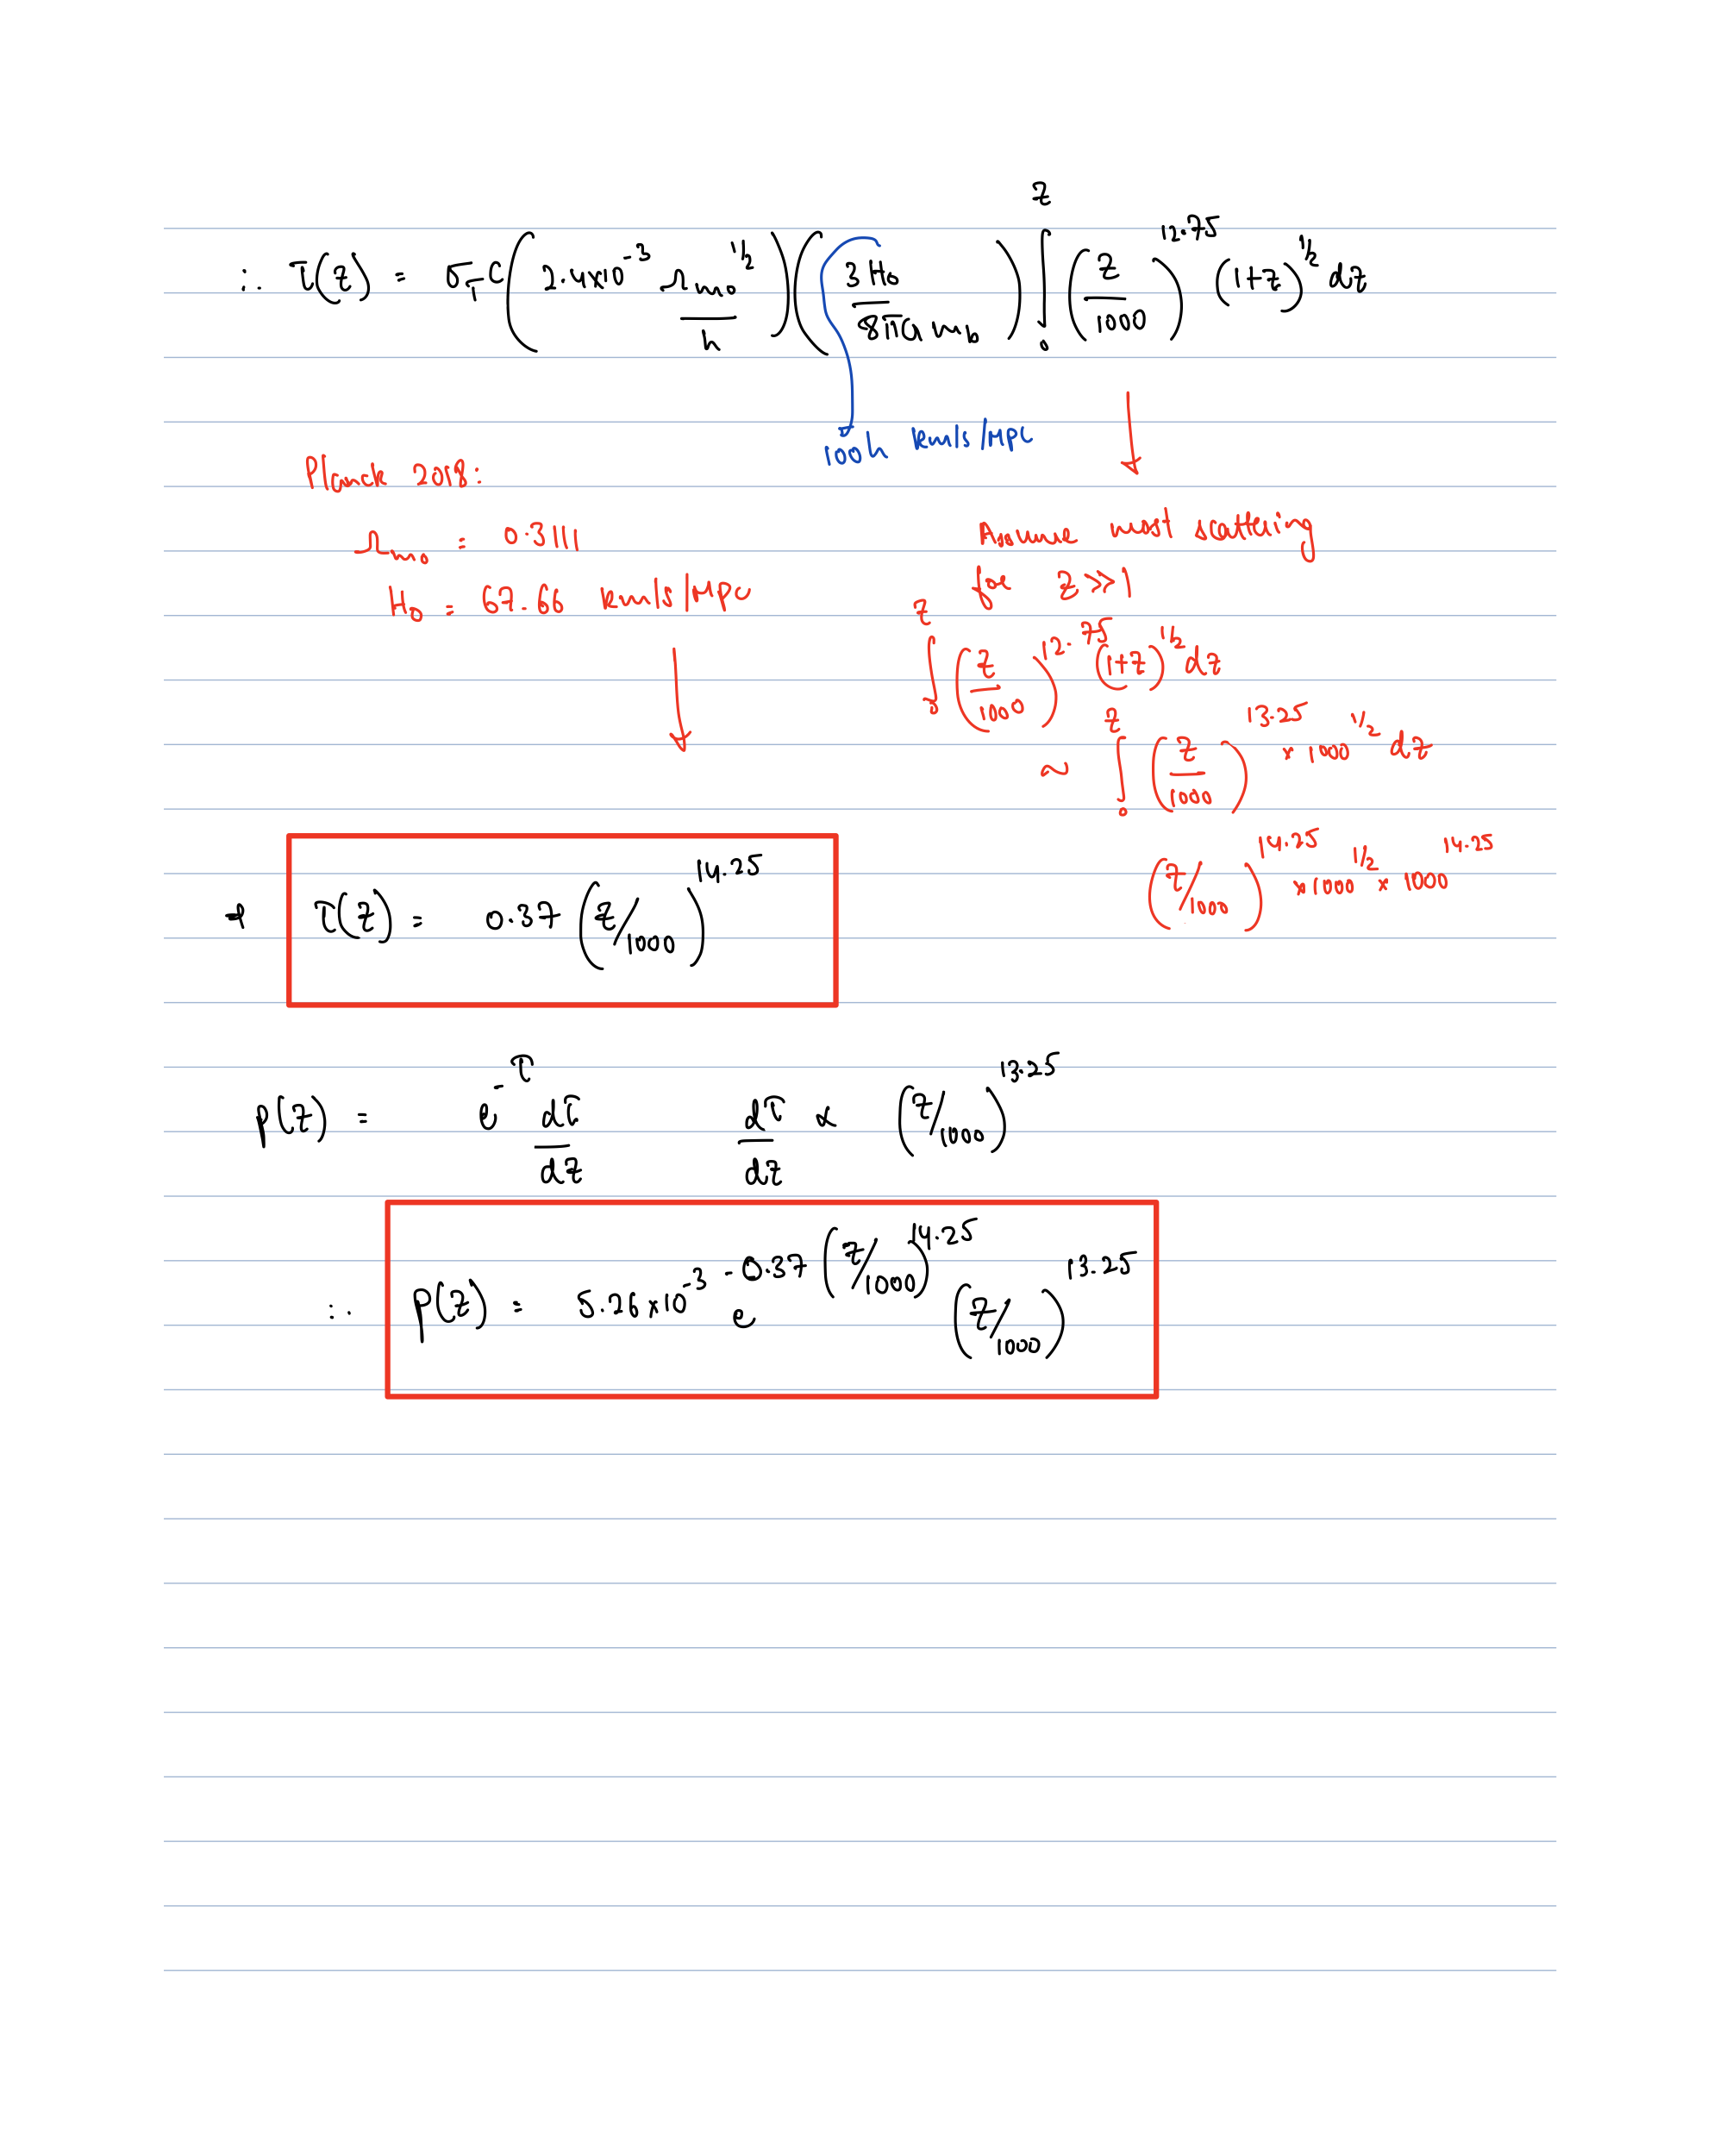 ∴ τ(z) = σ_T c (2.4×10^-3 Ω_m0^1/2 / h) (3 H0 / 8πG m_b) ∫_0^z (z/1000)^12.75 (1+z)^1/2 dz
100h km/s/Mpc
Planck 2018:
Ω_m0 = 0.3111
H0 = 67.66 km/s/Mpc
Assume most scattering
for z >> 1
∫_0^z (z/1000)^12.75 (1+z)^1/2 dz
~ ∫_0^z (z/1000)^13.25 × 1000^1/2 dz
(z/1000)^14.25 × 1000^1/2 × 1000^14.25
τ(z) = 0.37 (z/1000)^14.25
p(z) = e^-τ dτ/dz dτ/dz ∝ (z/1000)^13.25
∴ p(z) = 5.26×10^-3 e^-0.37 (z/1000)^14.25 (z/1000)^13.25